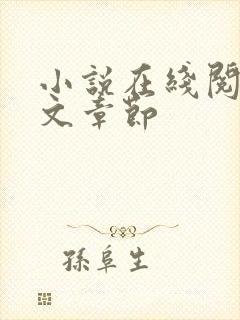 小說在綫閱
文章節
孫阜生